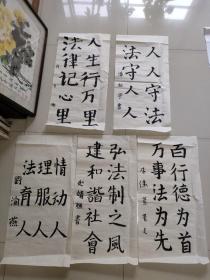 人生行万里
法律记心里
人人守法
法守人人
情动人
理服人
法育人
刘淑燕
弘法制之风
建和谐社會
百行德为首
万事法为先